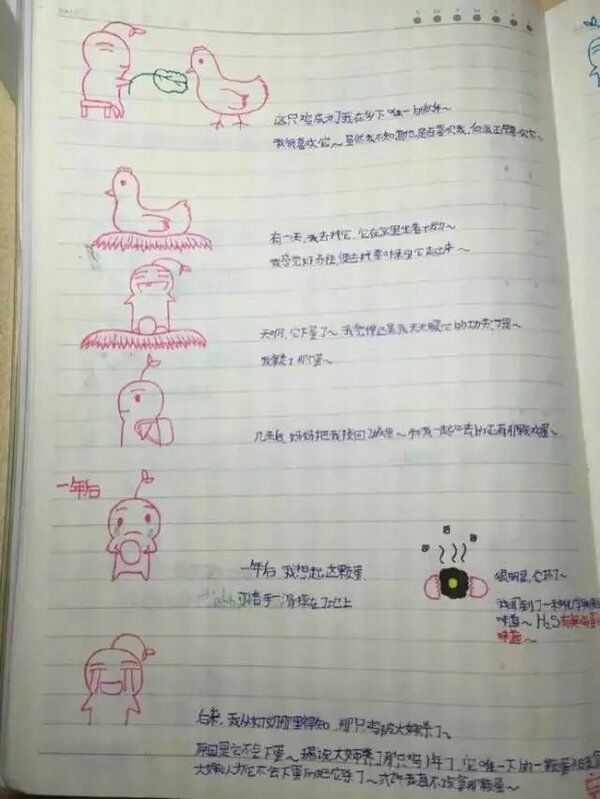 这只鸡成为了我在乡下唯一的伙伴~
我很喜欢它~虽然我不知道她是否喜欢我,但我还是喜欢它~
有一天,我去找它,它在窝里坐着不动~
我感觉好奇怪,便去找东西
天啊,它下蛋了~我觉得这是我天天喂它的功劳
我拿走了那个蛋~
几天后,妈妈把我接回了城里~和我一起回去的还有那颗鸡蛋~
一年后
一年后 我想起这颗蛋
手一滑掉在了地上
很明显,它坏了~
我闻到了一种化学
味道~H₂S有臭鸡蛋
味道~
后来,我从奶奶那里得知 那只鸡被大婶杀了~
原因是它不会下蛋~据说大婶养了那只鸡1年了,它唯一下的一颗蛋
大婶认为它不会下蛋所以把它杀了~我真不该拿那颗蛋~